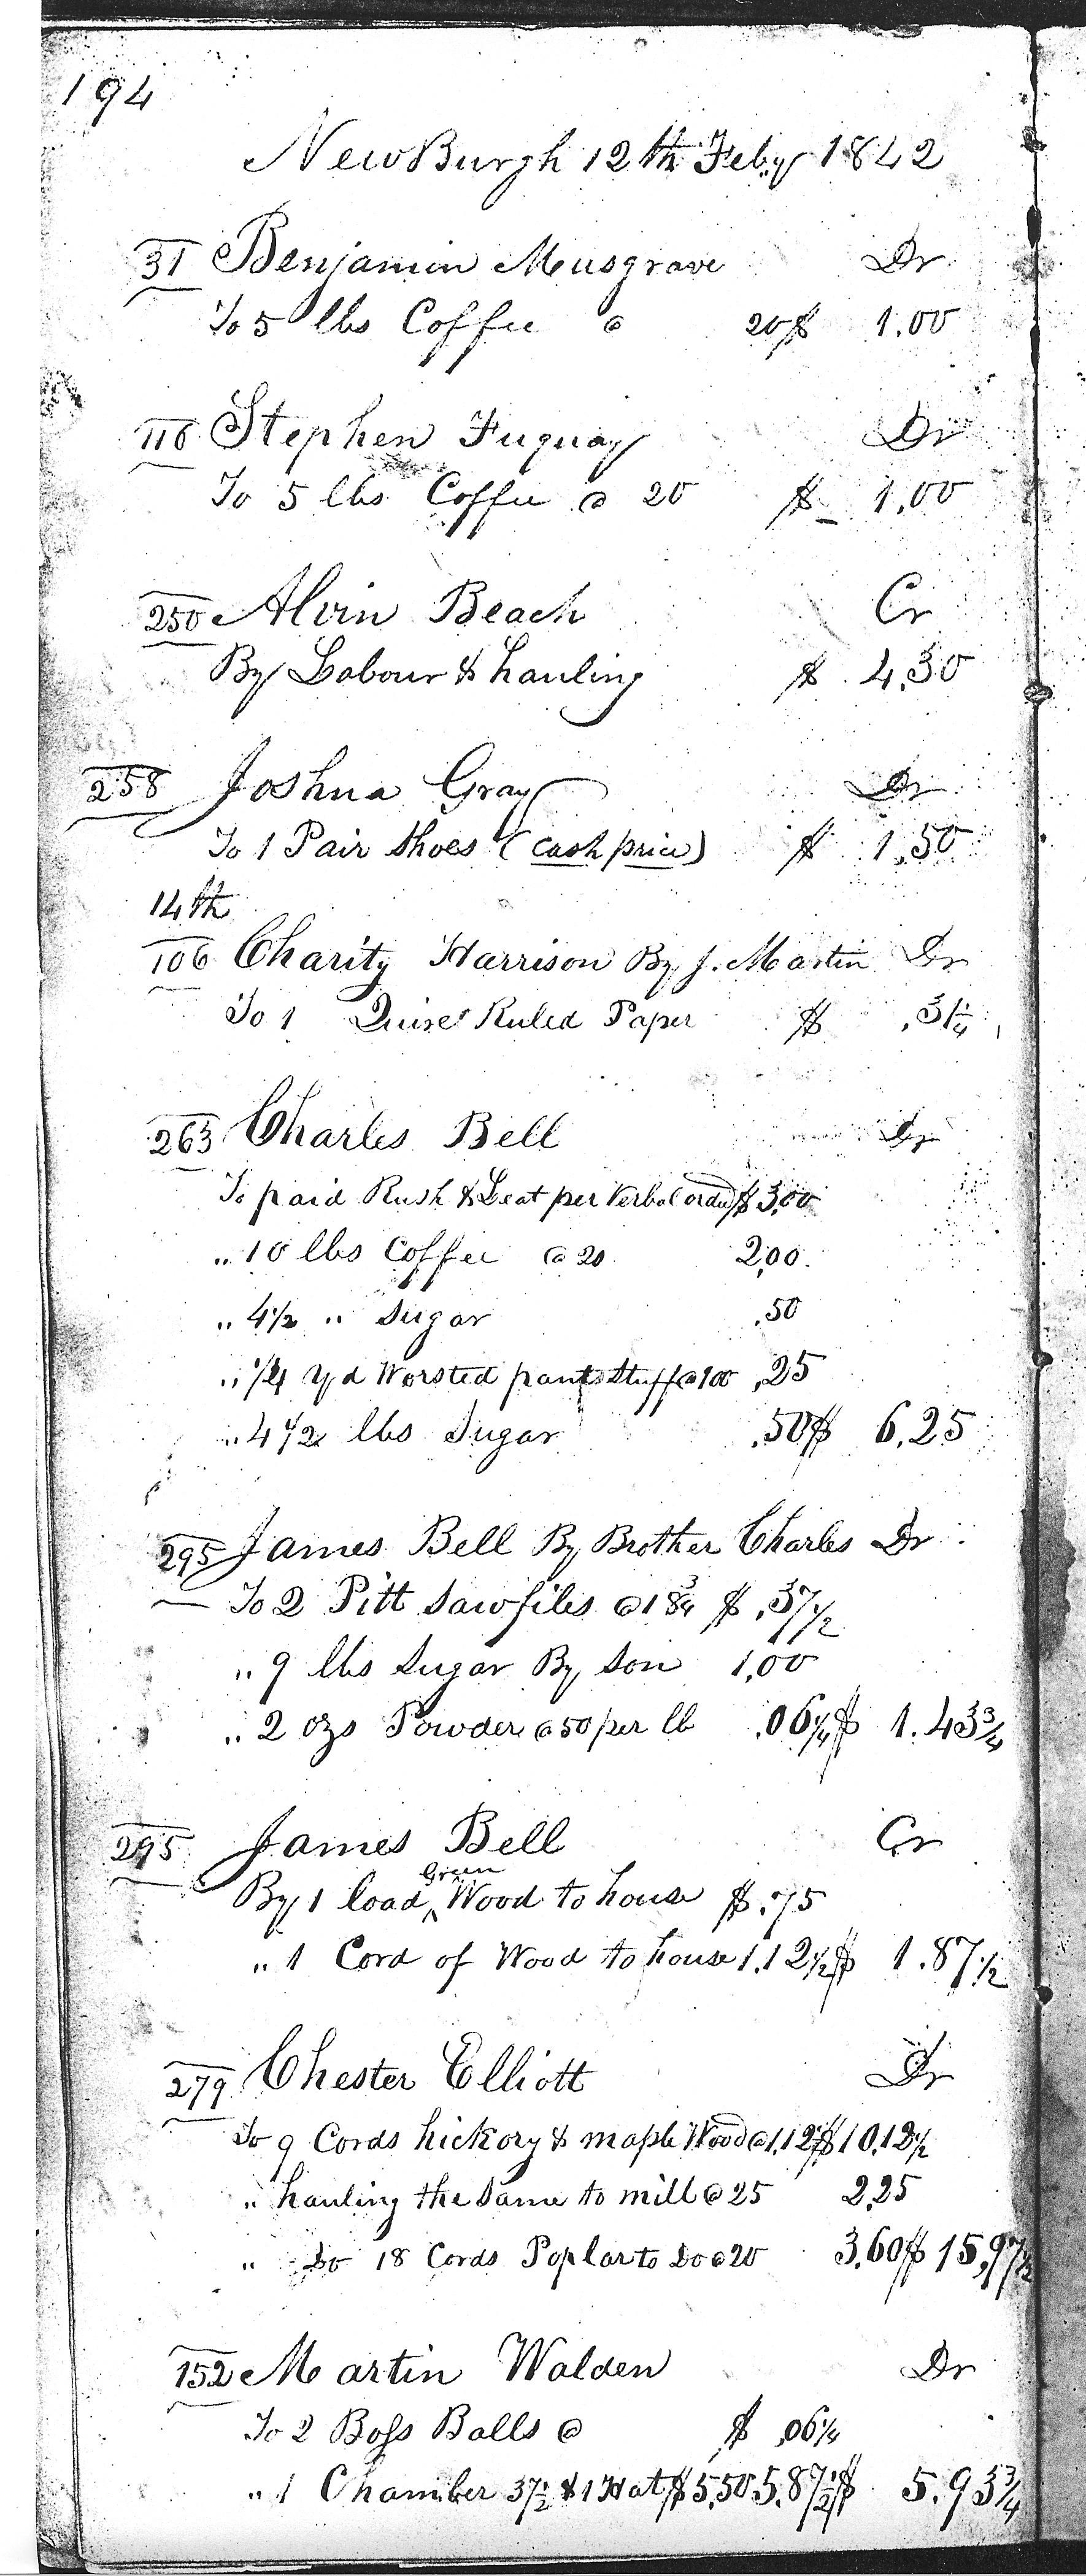 194
NewBurgh 12th Feby 1842
31 Benjamin Musgrave Dr
To 5 lbs Coffee @ 20 $ 1.00
116 Stephen Fuquay Dr
To 5 lbs Coffee @ 20 $ 1.00
250 Alvin Beach Cr
By Labour & hauling $ 4.30
258 Joshua Gray Dr
To 1 Pair Shoes (cash price) $ 1.50
14th
106 Charity Harrison By J. Martin Dr
To 1 Quire Ruled Paper $ .31¼
263 Charles Bell Dr
To paid Rush & Leat per Verbal order $ 3.00
" 10 lbs Coffee @ 20 2.00
" 4½ " Sugar .50
" ¼ yd Worsted pants Stuff @ 100 .25
" 4½ lbs Sugar .50 $ 6.25
295 James Bell By Brother Charles Dr
To 2 Pitt Saw files @ 18¾ $ .37½
" 9 lbs Sugar By Son 1.00
" 2 ozs Powder @ 50 per lb .06¼ $ 1.43¾
295 James Bell Cr
By 1 load Green Wood to house $ .75
" 1 Cord of Wood to house 1.12½ $ 1.87½
279 Chester Elliott Dr
To 9 Cords hickory & maple Wood @ 1.12½ $ 10.12½
" hauling the Same to mill @ 25 2.25
" Do 18 Cords Poplar to Do @ 20 3.60 $ 15.97½
152 Martin Walden Dr
To 2 Boss Balls @ $ .06¼
" 1 Chamber 37½ & 1 Hat $5.50 5.87½ $ 5.93¾